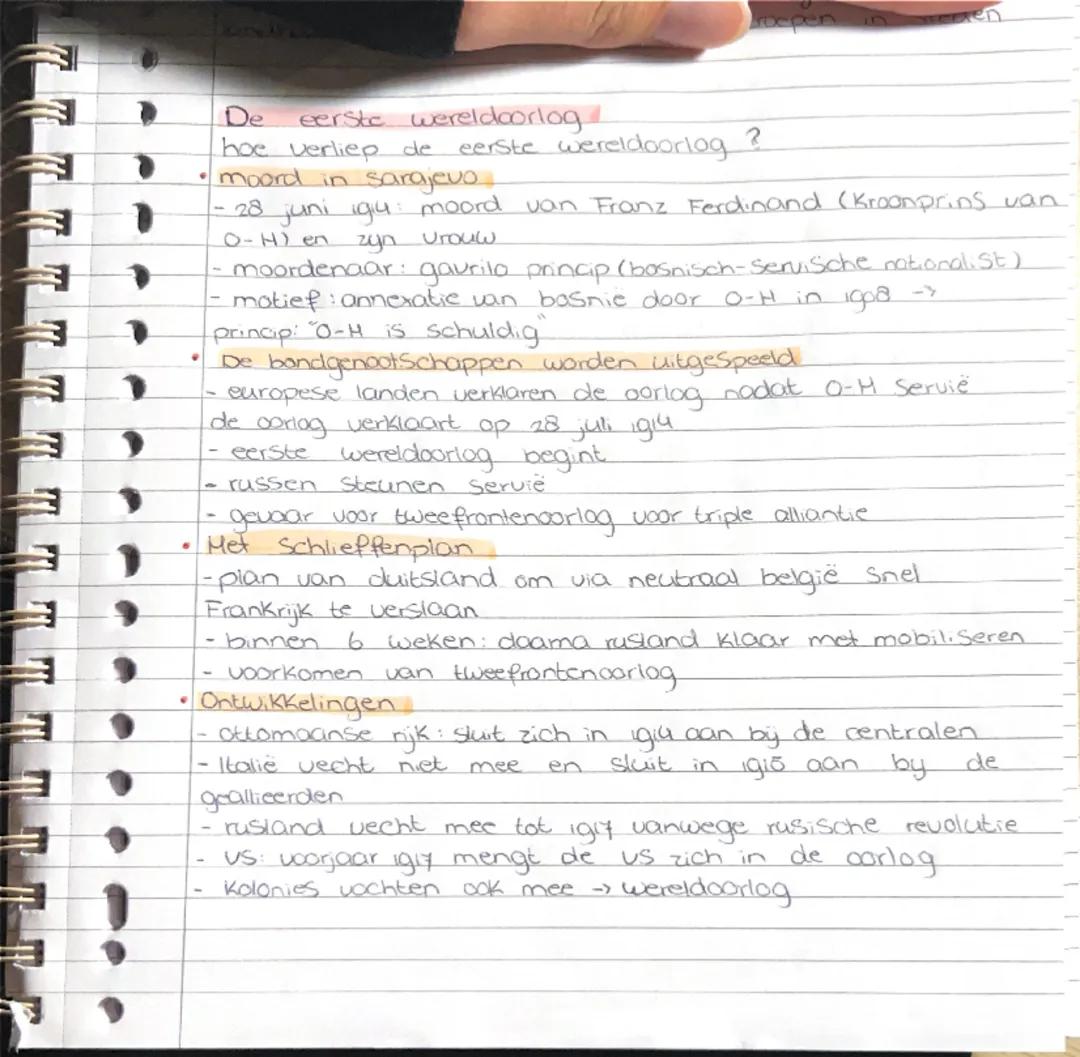 roepen in
De eerste wereldoorlog
hoe verliep de eerste wereldoorlog ?
• moord in sarajevo
- 28 juni 1914: moord van Franz Ferdinand (Kroonprins van
O-H) en zijn vrouw
- moordenaar: gavrilo princip (bosnisch-servische nationalist)
- motief: annexatie van bosnië door O-H in 1908 ->
princip: "O-H is schuldig"
• De bondgenootschappen worden uitgespeeld
- europese landen verklaren de oorlog nadat O-H Servië
de oorlog verklaart op 28 juli 1914
- eerste wereldoorlog begint
- russen steunen Servië
- gevaar voor tweefrontenoorlog voor triple alliantie
• Het Schlieffenplan
- plan van duitsland om via neutraal belgië snel
Frankrijk te verslaan
- binnen 6 weken: daarna rusland klaar met mobiliseren
- voorkomen van tweefrontenoorlog
• Ontwikkelingen
- ottomaanse rijk: sluit zich in 1914 aan bij de centralen
- Italië vecht niet mee en sluit in 1915 aan by de
geallieerden
- rusland vecht mee tot 1917 vanwege rusische revolutie
- VS: voorjaar 1917 mengt de VS zich in de oorlog
- Kolonies vochten ook mee -> wereldoorlog